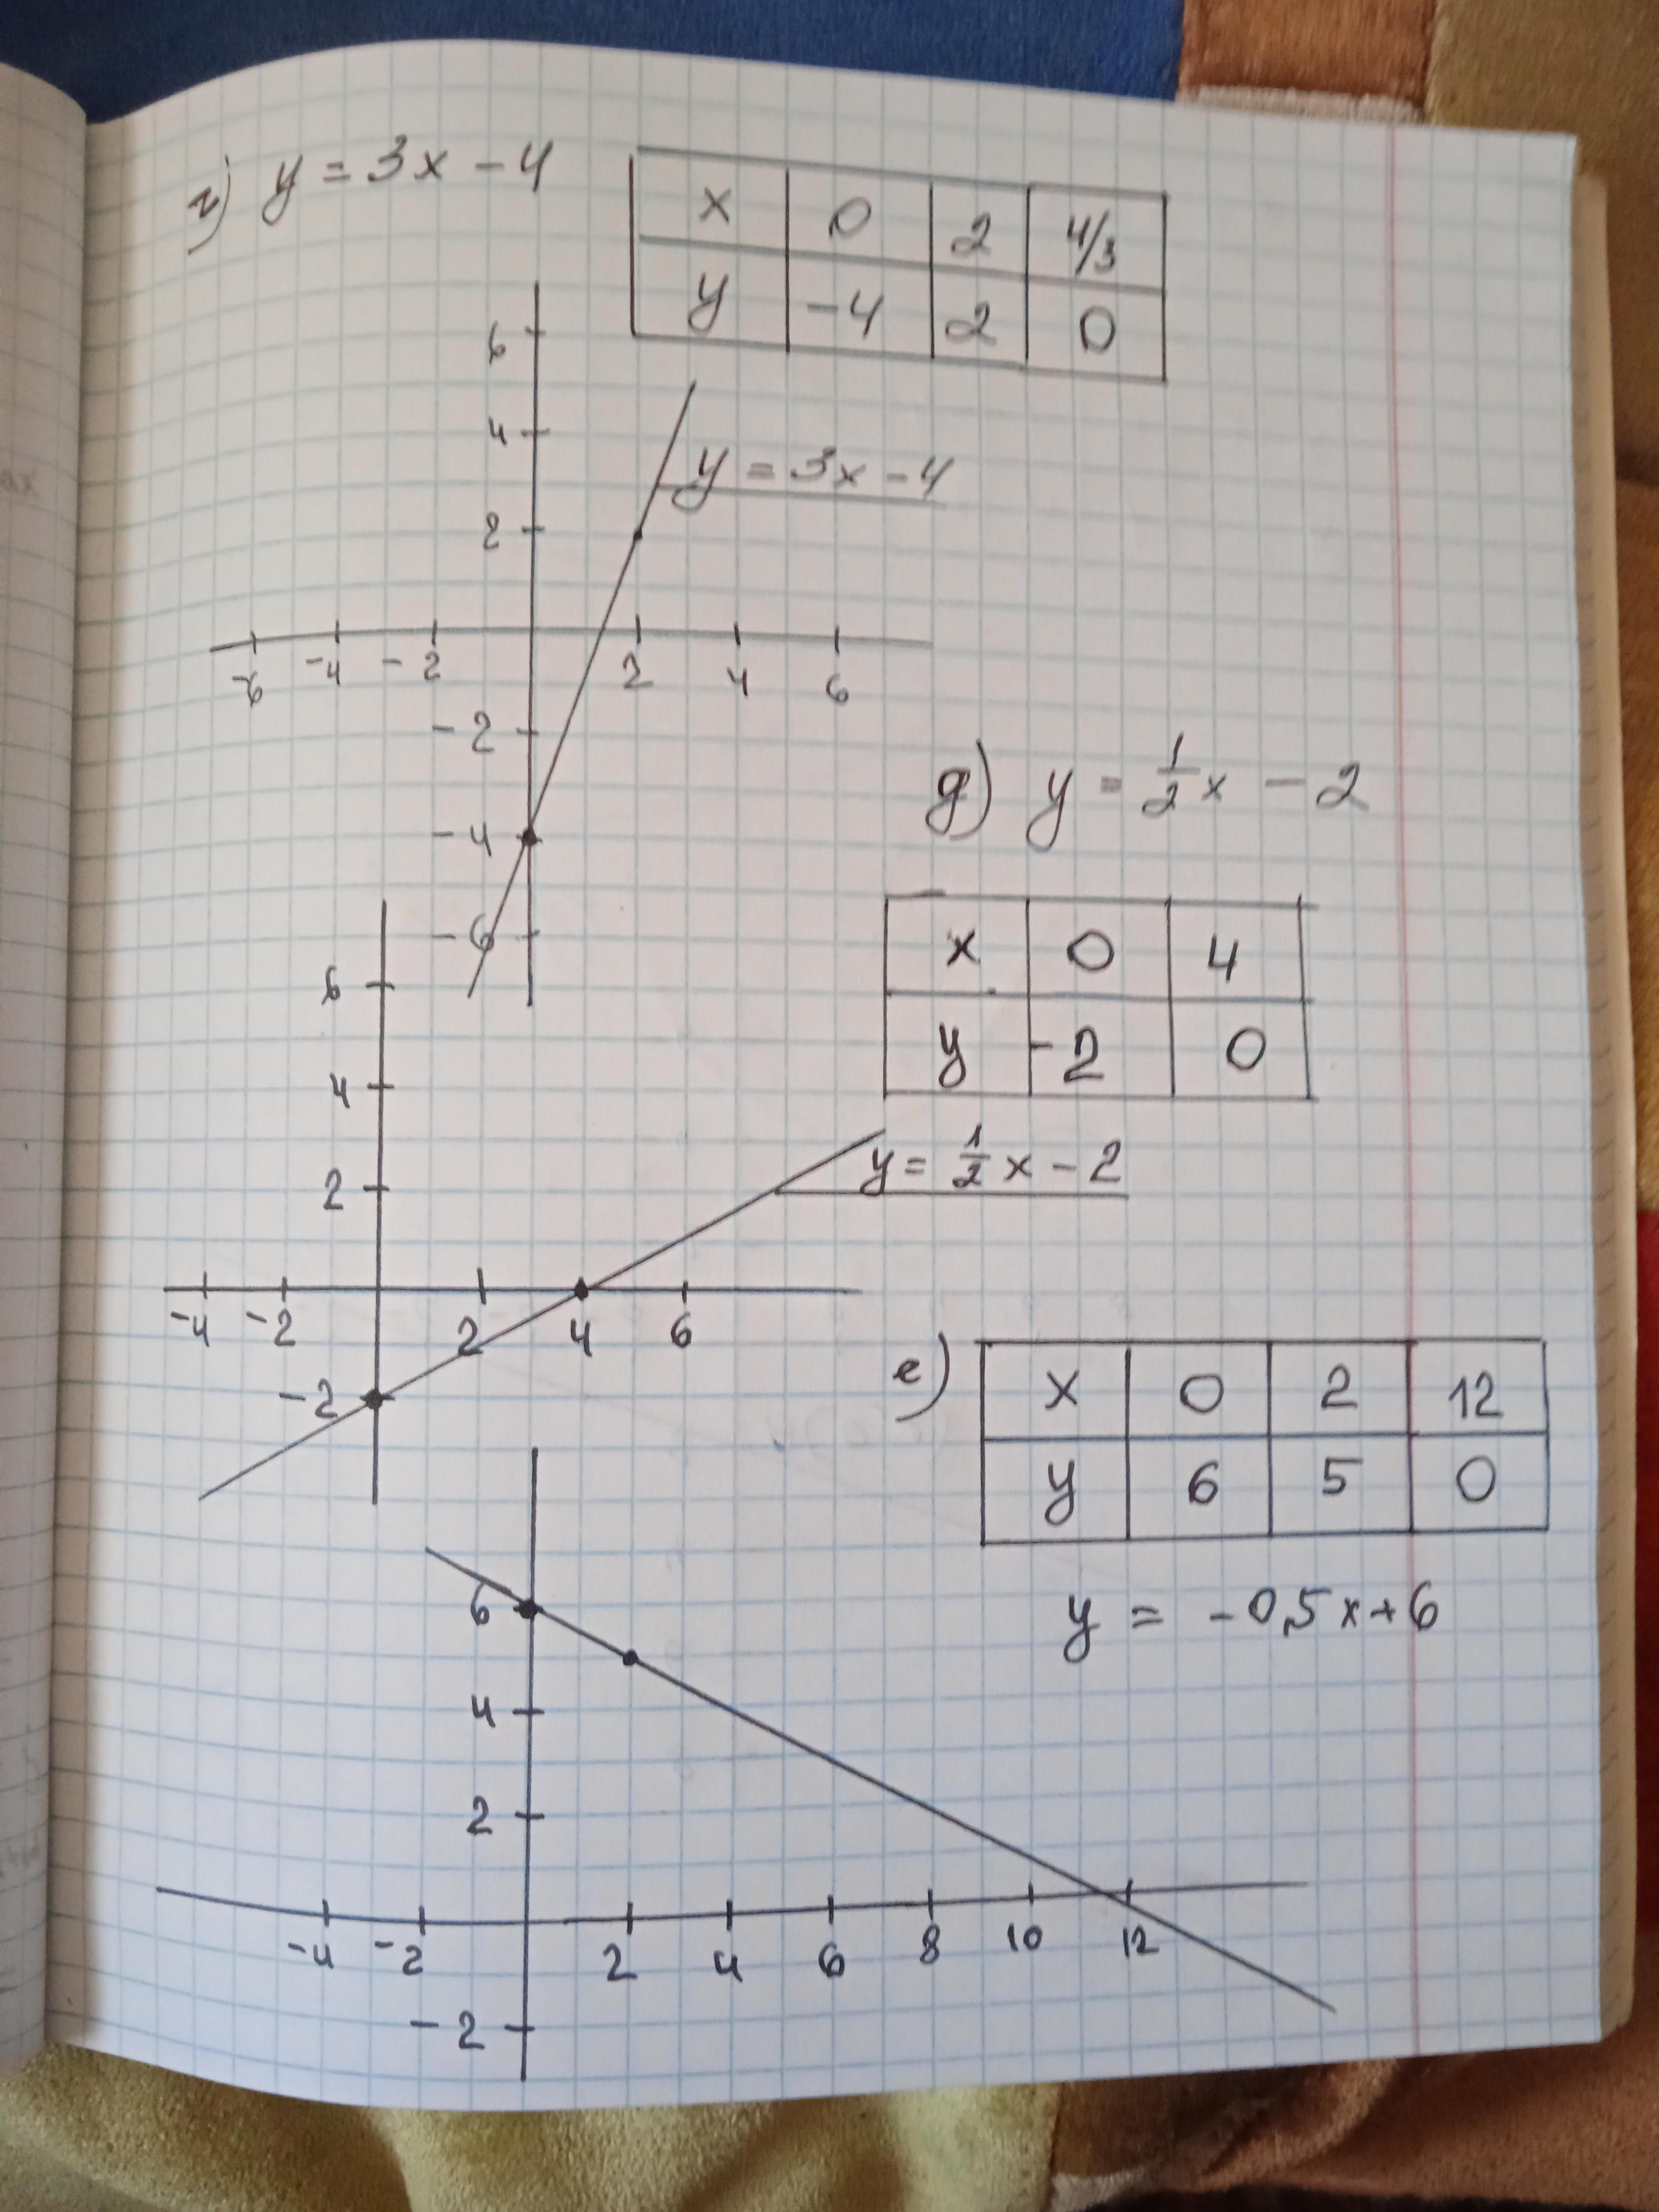 г) y = 3x - 4
x 0 2 4/3
y -4 2 0
6
4
y = 3x - 4
2
-6 -4 -2 2 4 6
-2
-4
-6
д) y = 1/2 x - 2
x 0 4
y -2 0
6
4
2
y = 1/2 x - 2
-4 -2 2 4 6
-2
е)
x 0 2 12
y 6 5 0
y = -0,5x+6
6
4
2
-4 -2 2 4 6 8 10 12
-2